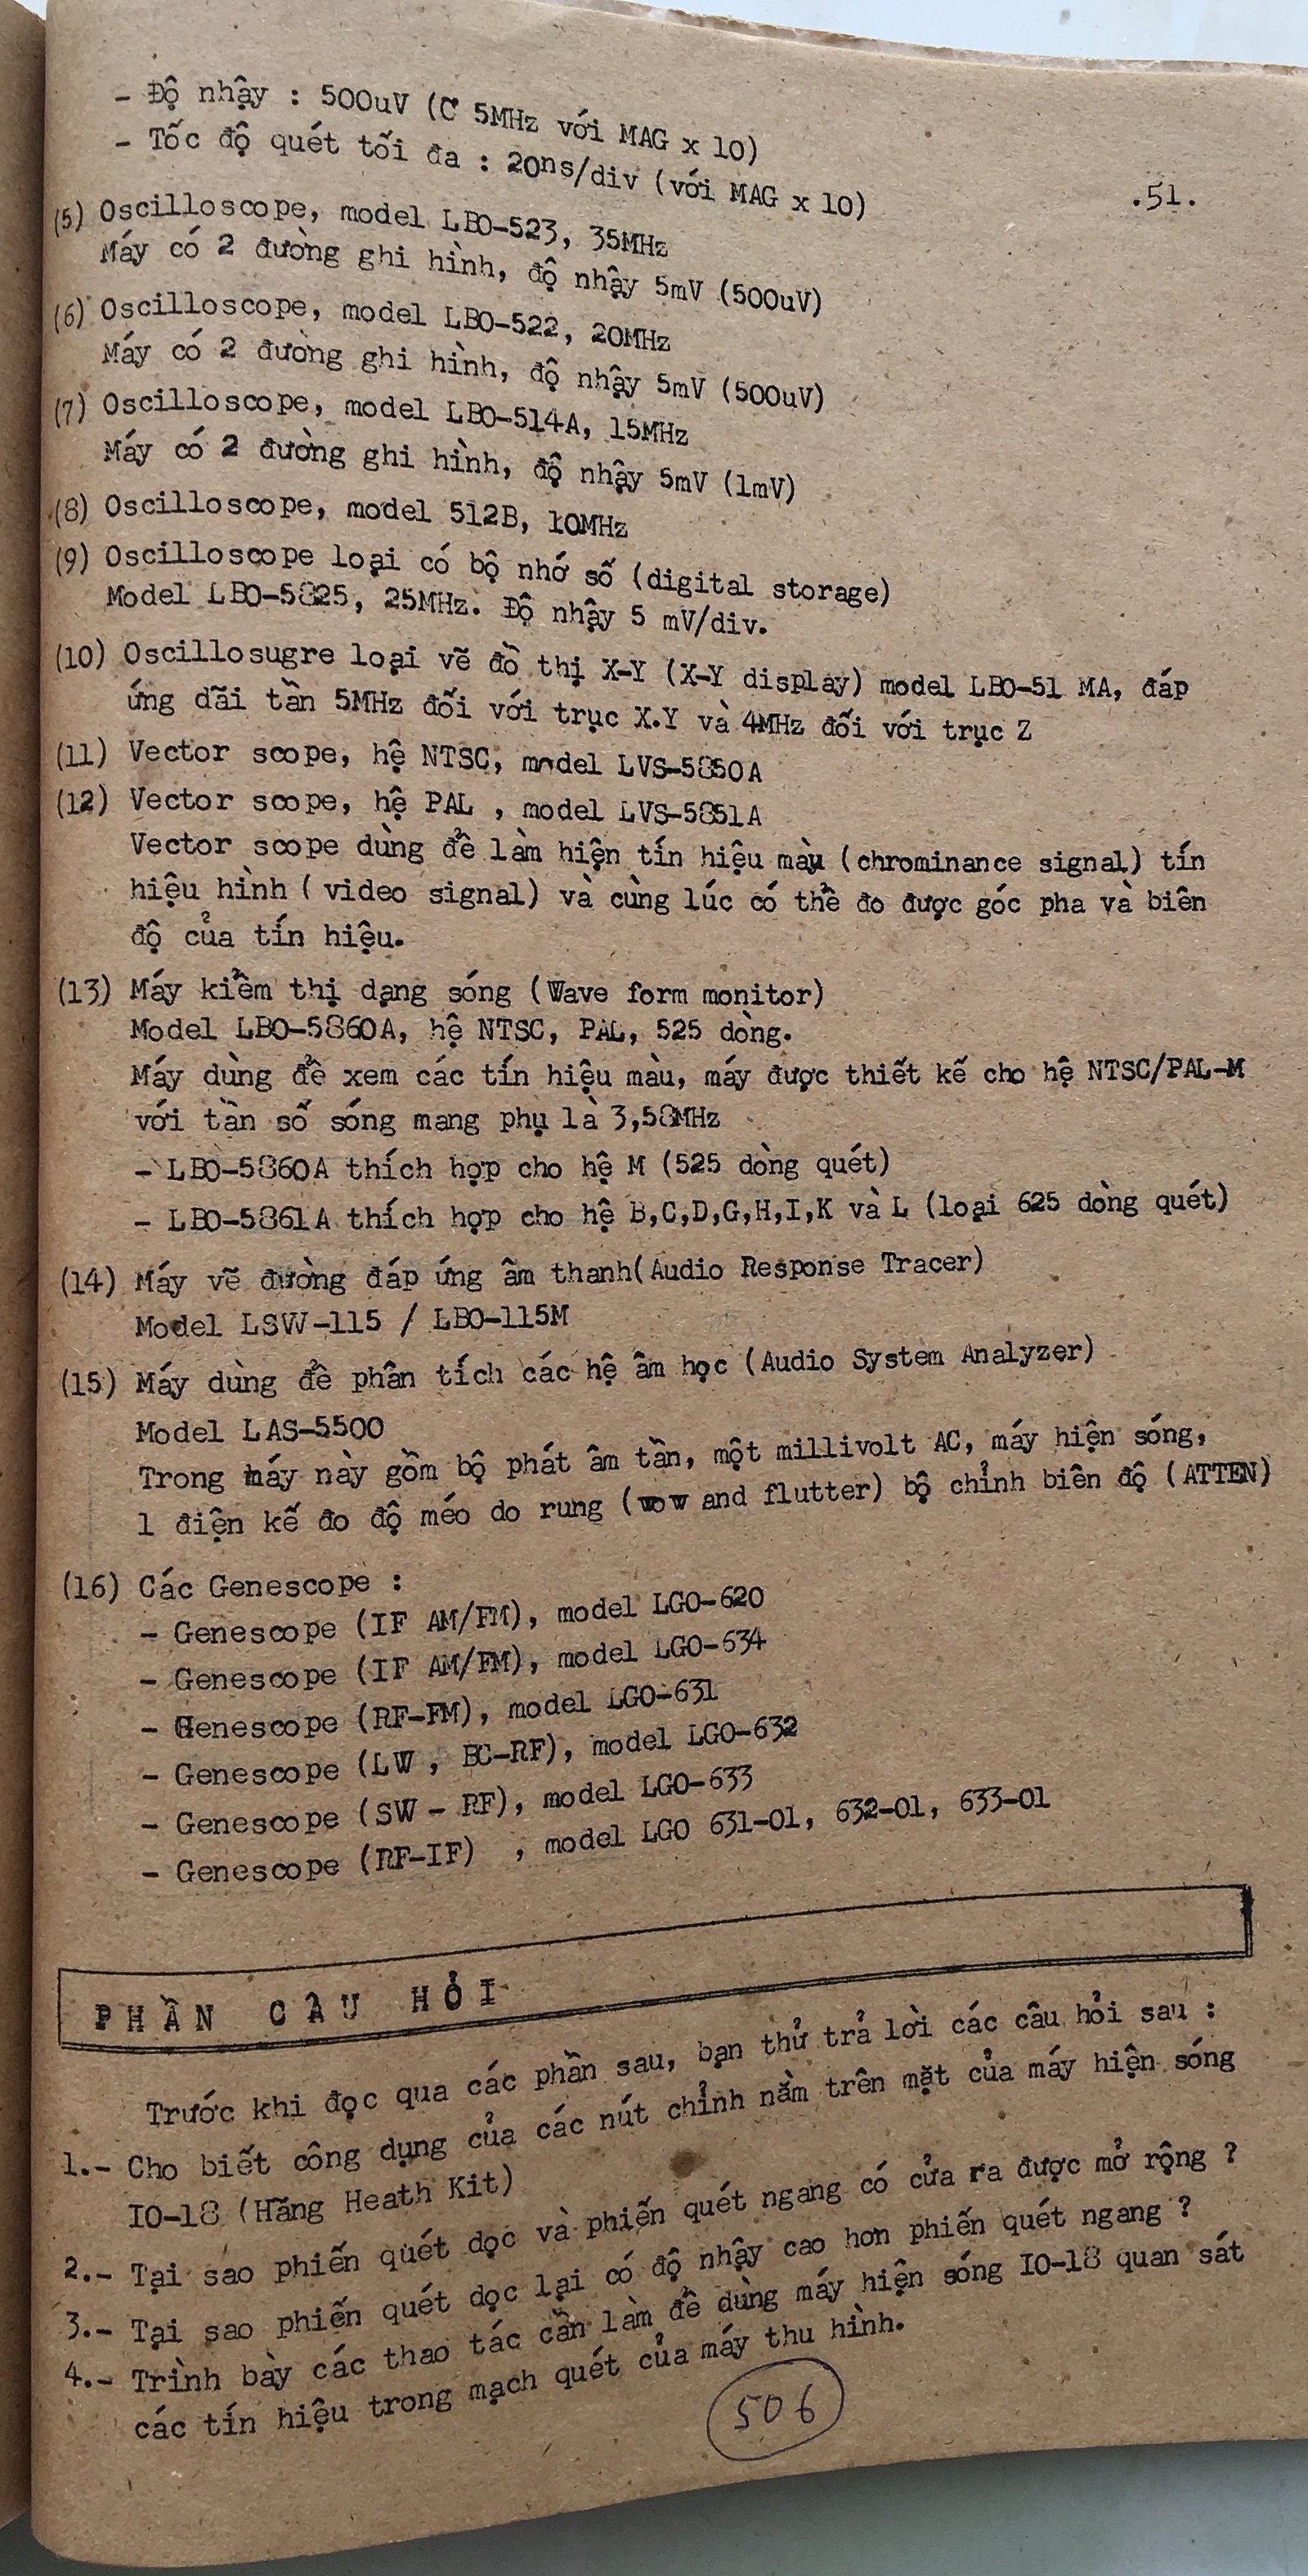 - Độ nhậy : 500uV (C 5MHz với MAG x 10)
- Tốc độ quét tối đa : 20ns/div (với MAG x 10)
.51.
(5) Oscilloscope, model LBO-523, 35MHz
Máy có 2 đường ghi hình, độ nhậy 5mV (500uV)
(6) Oscilloscope, model LBO-522, 20MHz
Máy có 2 đường ghi hình, độ nhậy 5mV (500uV)
(7) Oscilloscope, model LBO-514A, 15MHz
Máy có 2 đường ghi hình, độ nhậy 5mV (1mV)
(8) Oscilloscope, model 512B, 10MHz
(9) Oscilloscope loại có bộ nhớ số (digital storage)
Model LBO-5825, 25MHz. Độ nhậy 5 mV/div.
(10) Oscillosugre loại vẽ đồ thị X-Y (X-Y display) model LBO-51 MA, đáp
ứng dãi tần 5MHz đối với trục X.Y và 4MHz đối với trục Z
(11) Vector scope, hệ NTSC, model LVS-5850A
(12) Vector scope, hệ PAL , model LVS-5851A
Vector scope dùng để làm hiện tín hiệu màu (chrominance signal) tín
hiệu hình ( video signal) và cùng lúc có thể đo được góc pha và biên
độ của tín hiệu.
(13) Máy kiểm thị dạng sóng (Wave form monitor)
Model LBO-5860A, hệ NTSC, PAL, 525 dòng.
Máy dùng để xem các tín hiệu màu, máy được thiết kế cho hệ NTSC/PAL-M
với tần số sóng mang phụ là 3,58MHz
- LBO-5860A thích hợp cho hệ M (525 dòng quét)
- LBO-5861A thích hợp cho hệ B,C,D,G,H,I,K và L (loại 625 dòng quét)
(14) Máy vẽ đường đáp ứng âm thanh(Audio Response Tracer)
Model LSW-115 / LBO-115M
(15) Máy dùng để phân tích các hệ âm học (Audio System Analyzer)
Model LAS-5500
Trong máy này gồm bộ phát âm tần, một millivolt AC, máy hiện sóng,
1 điện kế đo độ méo do rung (wow and flutter) bộ chỉnh biên độ (ATTEN)
(16) Các Genescope :
- Genescope (IF AM/FM), model LGO-620
- Genescope (IF AM/FM), model LGO-634
- Genescope (RF-FM), model LGO-631
- Genescope (LW , BC-RF), model LGO-632
- Genescope (SW - RF), model LGO-633
- Genescope (RF-IF) , model LGO 631-01, 632-01, 633-01
PHẦN CÂU HỎI
Trước khi đọc qua các phần sau, bạn thử trả lời các câu hỏi sau :
1.- Cho biết công dụng của các nút chỉnh nằm trên mặt của máy hiện sóng
IO-18 (Hãng Heath Kit)
2.- Tại sao phiến quét dọc và phiến quét ngang có cửa ra được mở rộng ?
3.- Tại sao phiến quét dọc lại có độ nhậy cao hơn phiến quét ngang ?
4.- Trình bày các thao tác cần làm để dùng máy hiện sóng IO-18 quan sát
các tín hiệu trong mạch quét của máy thu hình.
506